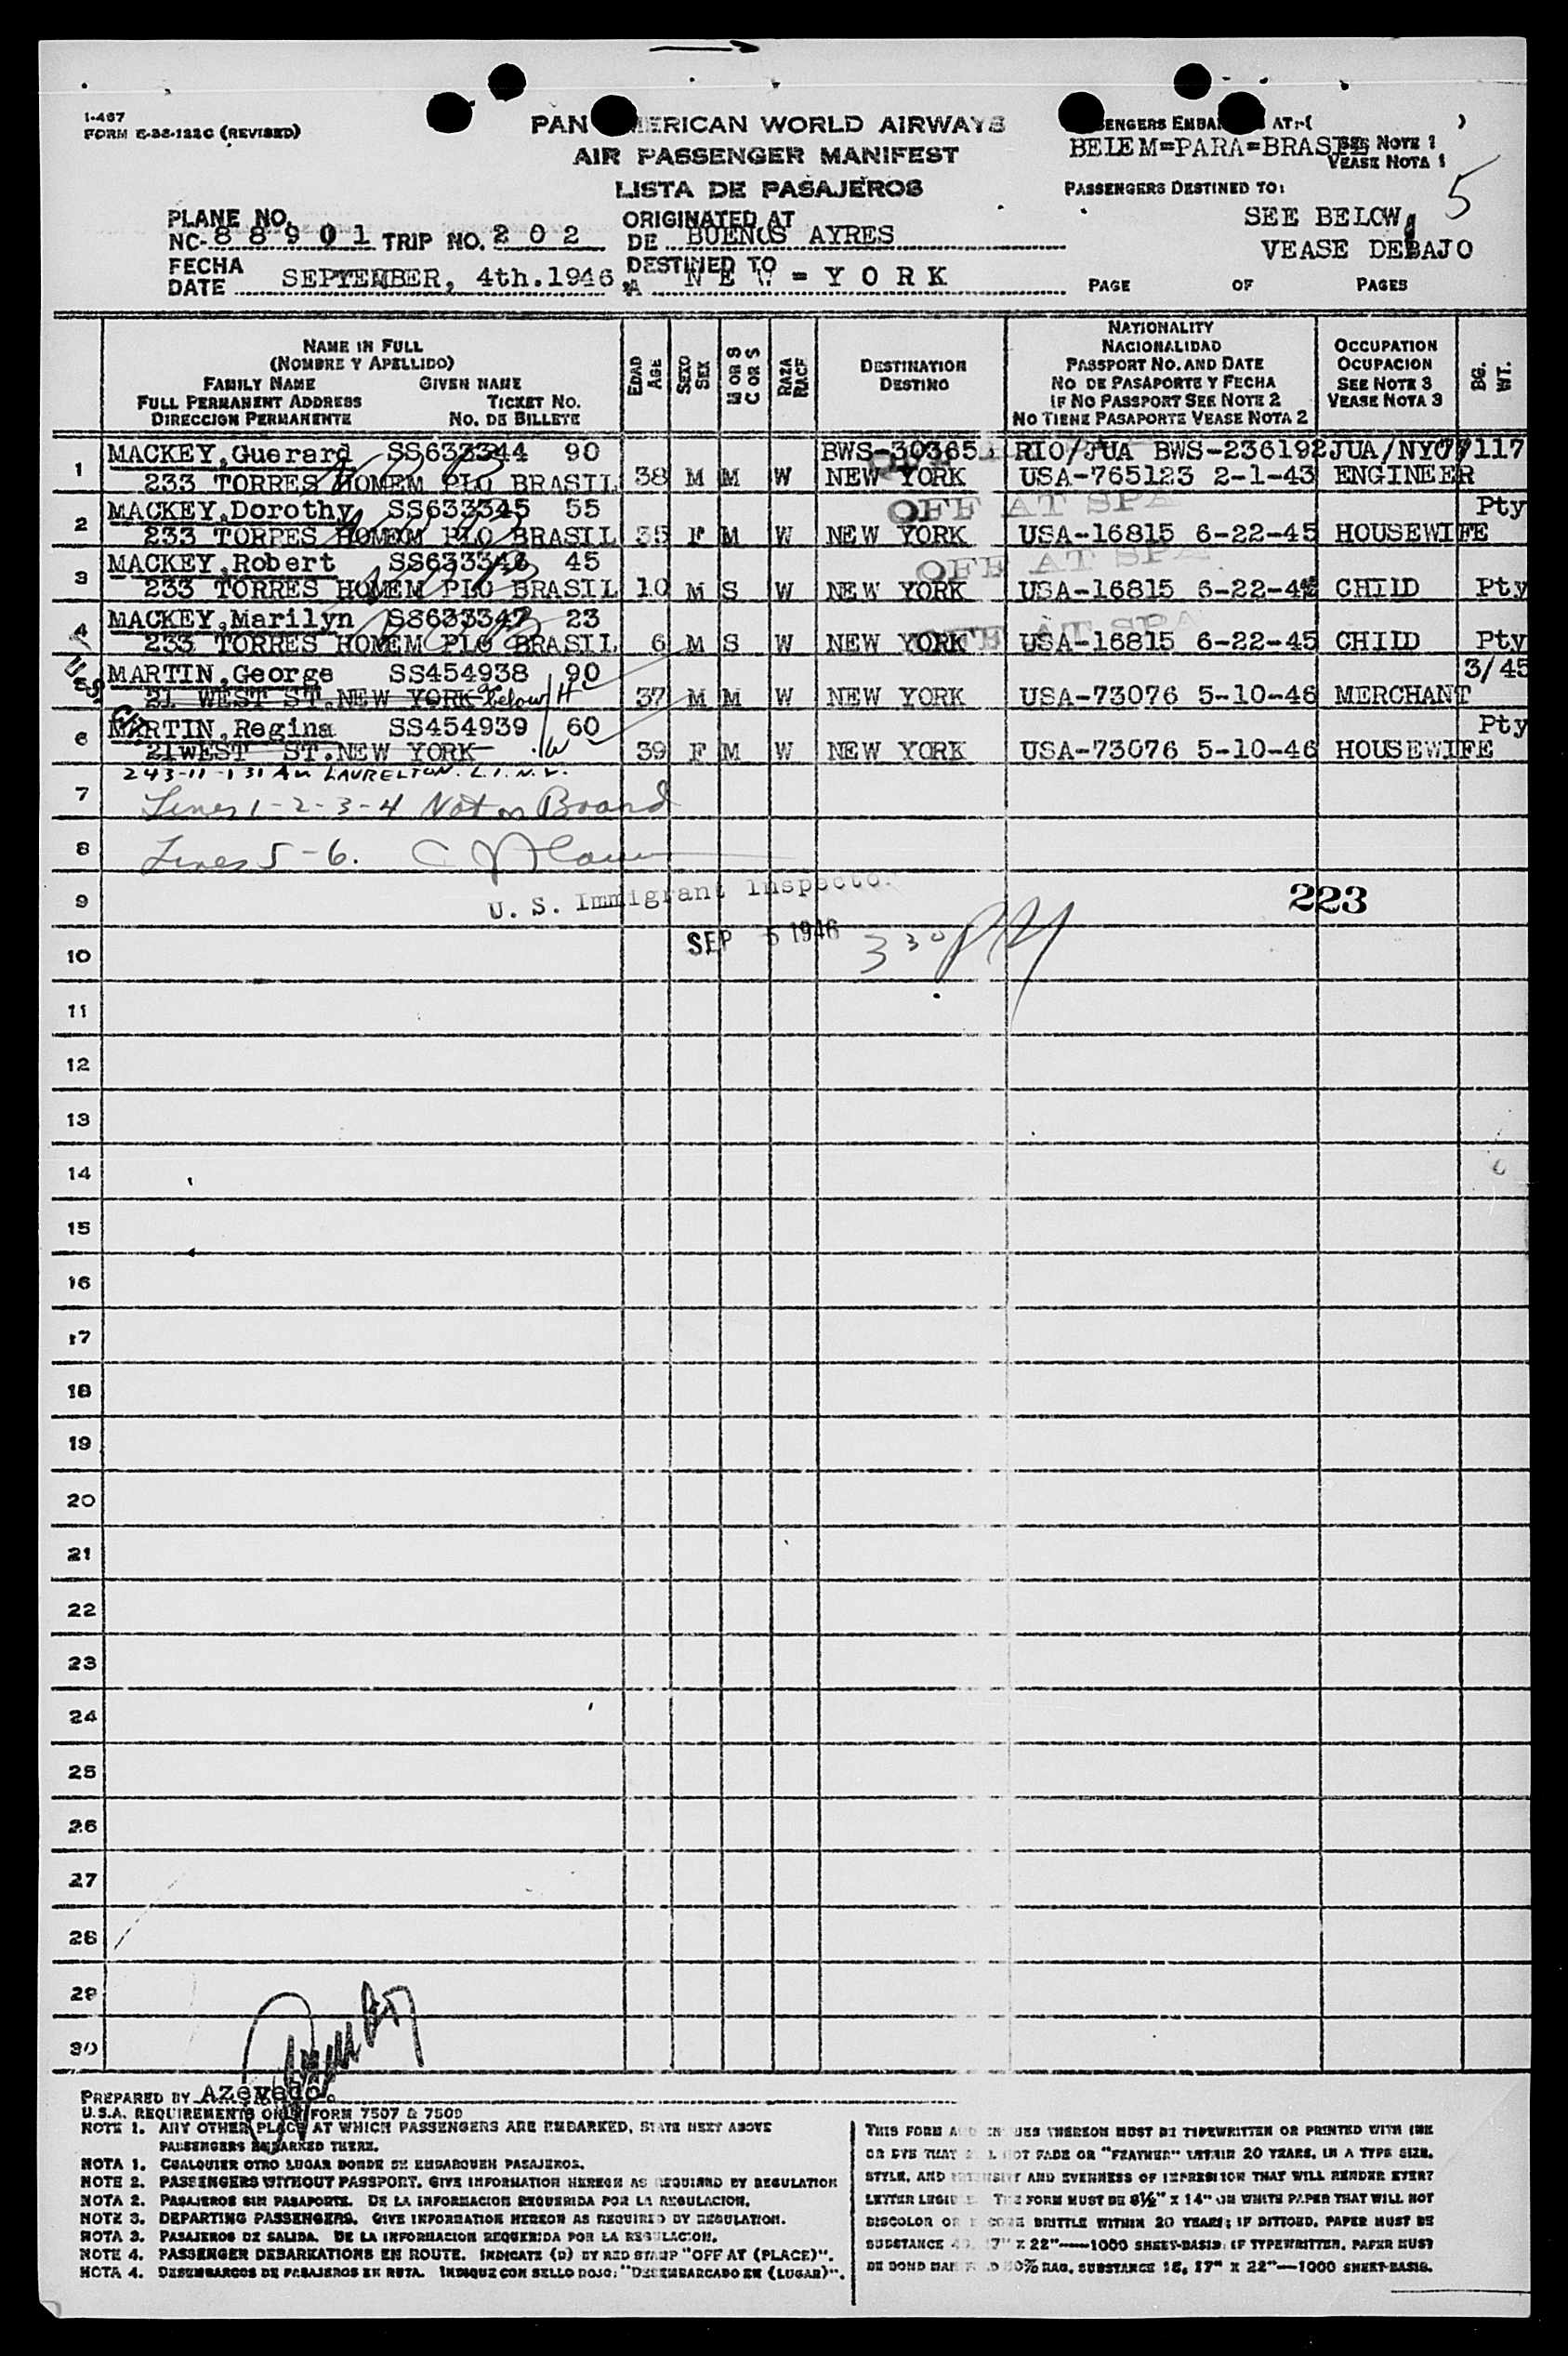 1-467
FORM E-38-122C (REVISED)
PAN AMERICAN WORLD AIRWAYS
AIR PASSENGER MANIFEST
LISTA DE PASAJEROS
PASSENGERS EMBARKED AT:-( )
BELEM=PARA=BRASIL SEE NOTE 1
VEASE NOTA 1
PASSENGERS DESTINED TO:
5
SEE BELOW
VEASE DEBAJO
PLANE NO.
NC-88901 TRIP NO. 202
ORIGINATED AT
DE BUENOS AYRES
FECHA
DATE SEPTEMBER, 4th.1946
DESTINED TO
A NEW=YORK
PAGE OF PAGES
NAME IN FULL
(NOMBRE Y APELLIDO)
FAMILY NAME GIVEN NAME
FULL PERMANENT ADDRESS TICKET NO.
DIRECCION PERMANENTE NO. DE BILLETE
EDAD
AGE
SEXO
SEX
M OR S
C OR S
RAZA
RACE
DESTINATION
DESTINO
NATIONALITY
NACIONALIDAD
PASSPORT NO. AND DATE
NO DE PASAPORTE Y FECHA
IF NO PASSPORT SEE NOTE 2
NO TIENE PASAPORTE VEASE NOTA 2
OCCUPATION
OCUPACION
SEE NOTE 3
VEASE NOTA 3
BG.
WT.
1 MACKEY,Guerard SS633344 90 BWS-30365 RIO/JUA BWS-236192 JUA/NYC 77117
233 TORRES HOMEM PLO BRASIL 38 M M W NEW YORK USA-765123 2-1-43 ENGINEER
2 MACKEY,Dorothy SS633345 55 OFF AT SPA Pty
233 TORRES HOMEM PLO BRASIL 35 F M W NEW YORK USA-16815 6-22-45 HOUSEWIFE
3 MACKEY,Robert SS633346 45 OFF AT SPA
233 TORRES HOMEM PLO BRASIL 10 M S W NEW YORK USA-16815 6-22-45 CHILD Pty
4 MACKEY,Marilyn SS633347 23 OFF AT SPA
233 TORRES HOMEM PLO BRASIL 6 M S W NEW YORK USA-16815 6-22-45 CHILD Pty
MARTIN,George SS454938 90 3/45
21 WEST ST.NEW YORK below H 37 M M W NEW YORK USA-73076 5-10-46 MERCHANT
6 MARTIN,Regina SS454939 60 Pty
21WEST ST.NEW YORK W 39 F M W NEW YORK USA-73076 5-10-46 HOUSEWIFE
243-11-131 Av LAURELTON. L.I. N.Y.
7 Lines 1-2-3-4 Not on Board
8 Lines 5-6.
9 U. S. Immigrant Inspector
223
10 SEP 5 1946 3 30 PM
11
12
13
14
15
16
17
18
19
20
21
22
23
24
25
26
27
28
29
30
PREPARED BY Azevedo.
U.S.A. REQUIREMENTS ONLY FORM 7507 & 7509
NOTE 1. ANY OTHER PLACE AT WHICH PASSENGERS ARE EMBARKED, STATE NEXT ABOVE
PASSENGERS EMBARKED THERE.
NOTA 1. CUALQUIER OTRO LUGAR DONDE SE EMBARQUEN PASAJEROS.
NOTE 2. PASSENGERS WITHOUT PASSPORT. GIVE INFORMATION HEREON AS REQUIRED BY REGULATION
NOTA 2. PASAJEROS SIN PASAPORTE. DE LA INFORMACION REQUERIDA POR LA REGULACION.
NOTE 3. DEPARTING PASSENGERS. GIVE INFORMATION HEREON AS REQUIRED BY REGULATION.
NOTA 3. PASAJEROS DE SALIDA. DE LA INFORMACION REQUERIDA POR LA REGULACION.
NOTE 4. PASSENGER DEBARKATIONS EN ROUTE. INDICATE (D) BY RED STAMP "OFF AT (PLACE)".
NOTA 4. DESEMBARCOS DE PASAJEROS EN RUTA. INDIQUE CON SELLO ROJO: "DESEMBARCADO EN (LUGAR)".
THIS FORM AND ENTRIES THEREON MUST BE TYPEWRITTEN OR PRINTED WITH INK
OR DYE THAT WILL NOT FADE OR "FEATHER" WITHIN 20 YEARS, IN A TYPE SIZE,
STYLE, AND INTENSITY AND EVENNESS OF IMPRESSION THAT WILL RENDER EVERY
LETTER LEGIBLE. THE FORM MUST BE 8½" X 14" ON WHITE PAPER THAT WILL NOT
DISCOLOR OR BECOME BRITTLE WITHIN 20 YEARS; IF DITTOED, PAPER MUST BE
SUBSTANCE 40, 17" X 22"—1000 SHEET-BASIS; IF TYPEWRITTEN, PAPER MUST
BE BOND 50% RAG, SUBSTANCE 16, 17" X 22"—1000 SHEET-BASIS.